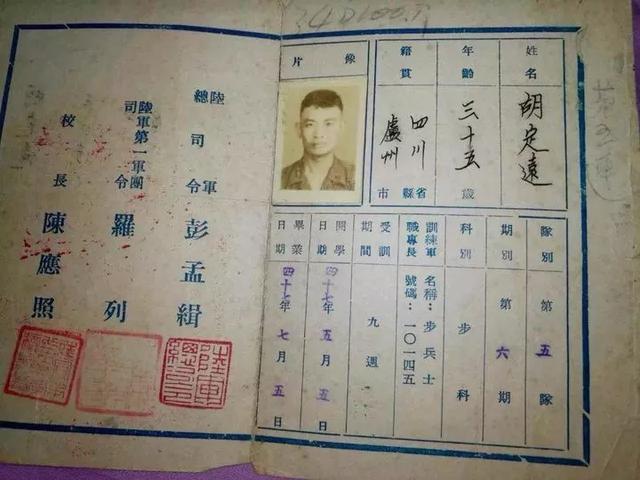 姓名 胡定遠
年齡 三十五歲
籍貫 四川 盧州 省縣市
像片
隊別 第五隊
期別 第六期
科別 步科
訓練軍職專長 名稱：步兵士 號碼：一〇一四五
受訓期間 九週
開學日期 四十七年五月五日
畢業日期 四十七年七月五日
陸軍總司令 彭孟緝
陸軍第一軍團司令 羅列
校長 陳應照